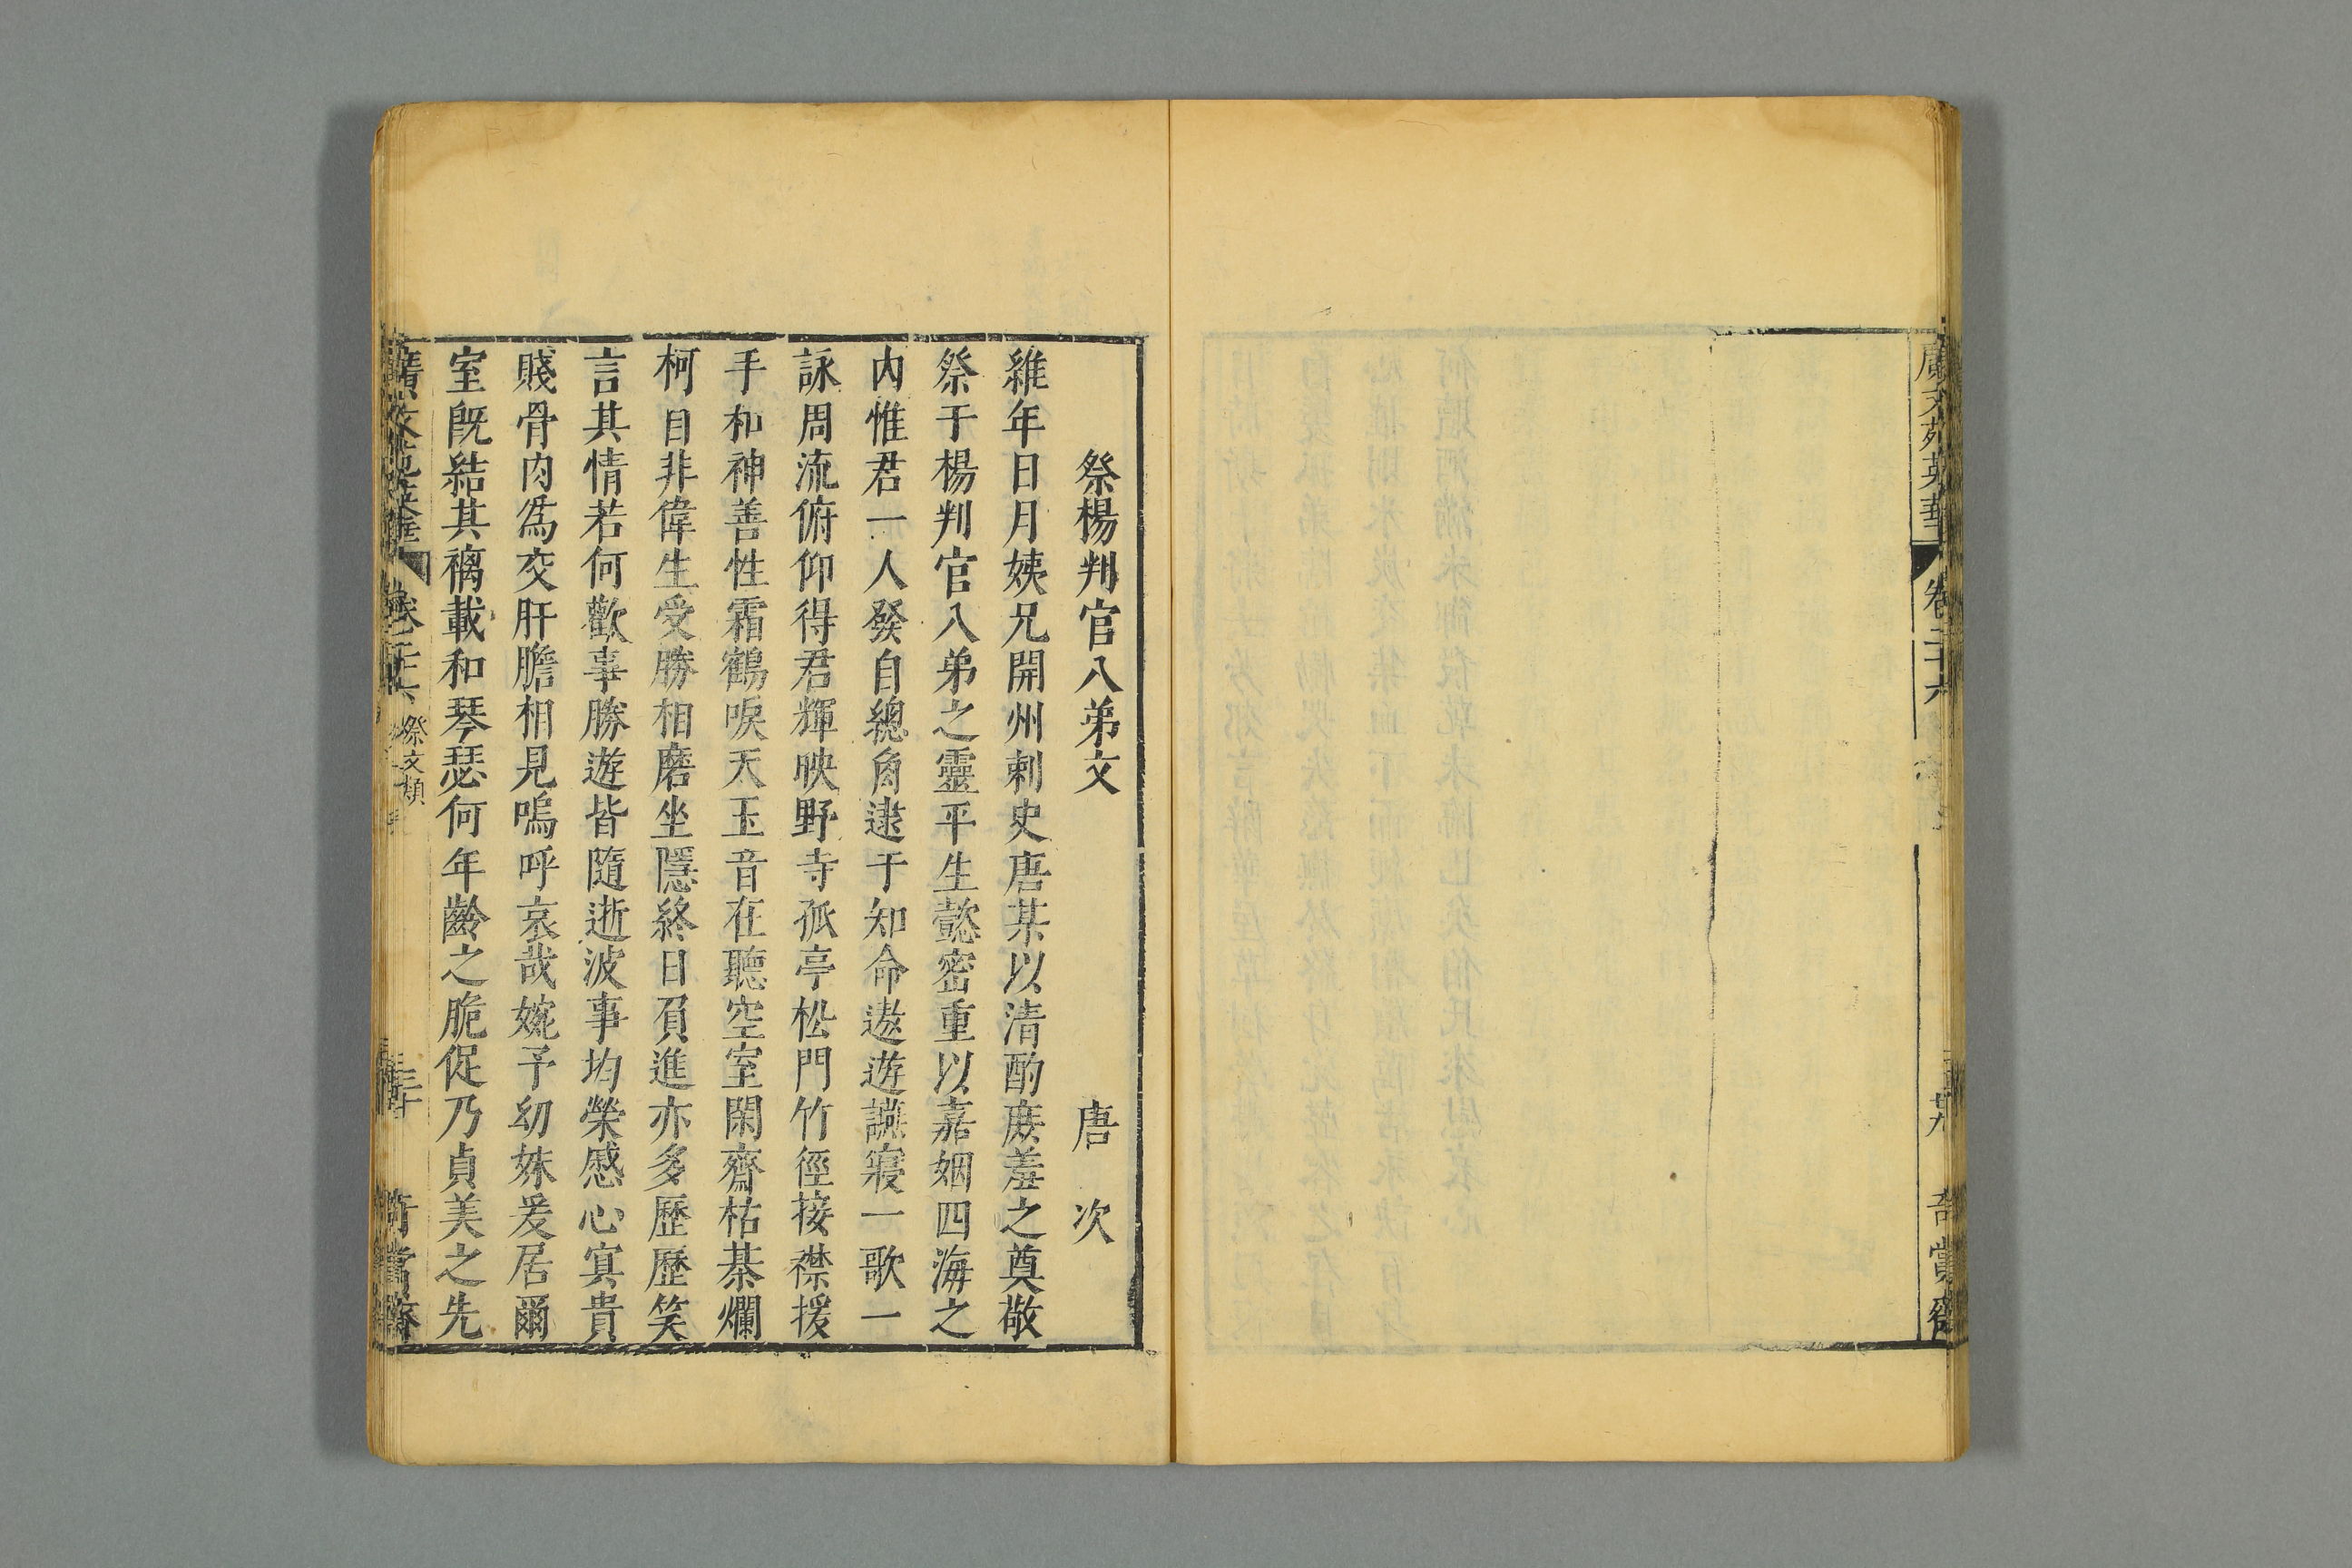 廣文苑英華
卷二十六
廿九
奇賞齋
祭楊判官八弟文　唐次
維年日月姨兄開州刺史唐某以清酌庶羞之奠敬
祭于楊判官八弟之靈平生懿密重以嘉姻四海之
內惟君一人發自總角逮于知命遨遊讌寢一歌一
詠周流俯仰得君輝映野寺孤亭松門竹徑接襟援
手和神善性霜鶴唳天玉音在聽空室閑齋枯棊爛
柯目非偉生受勝相磨坐隱終日負進亦多歷歷笑
言其情若何歡事勝遊皆隨逝波事均榮慼心寘貴
賤骨肉爲交肝膽相見嗚呼哀哉婉予幼妹爰居爾
室旣結其褵載和琴瑟何年齡之脆促乃貞美之先
廣文苑英華
卷二十六
祭文類
三十
奇賞齋